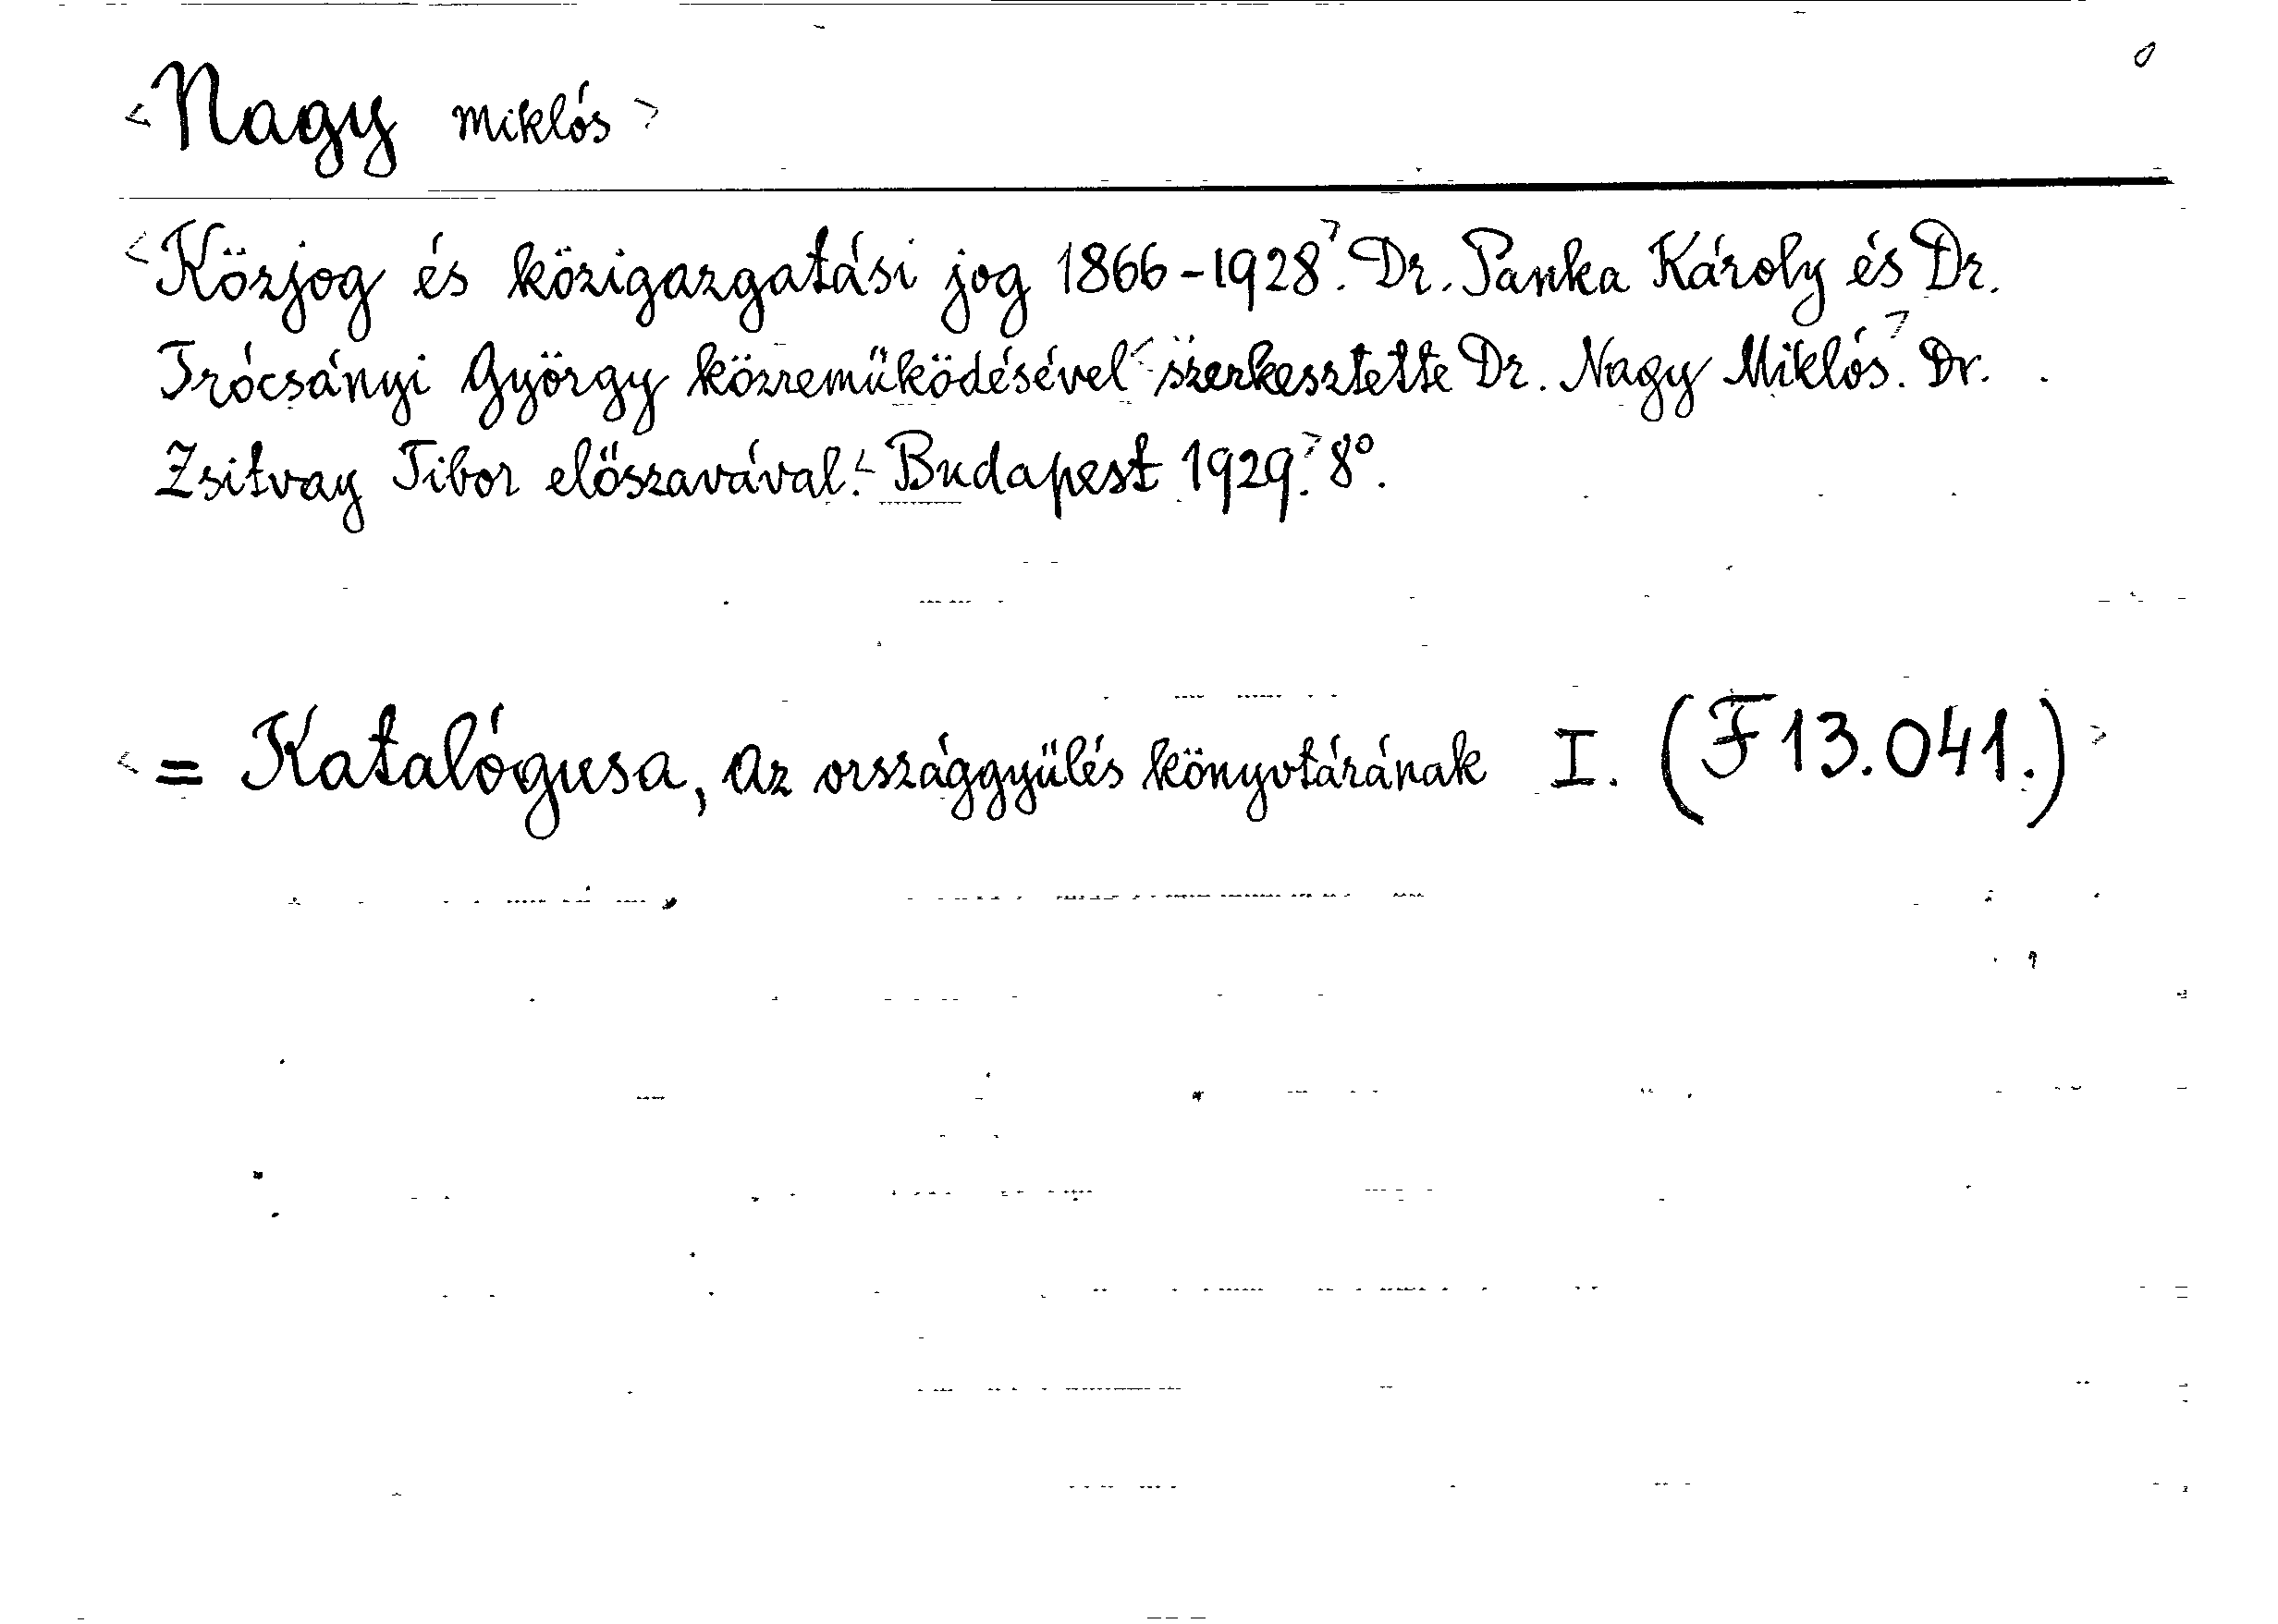 <Nagy Miklós>
<Közjog és közigazgatási jog 1866-1928>. Dr. Panka Károly és Dr.
Trócsányi György közreműködésével <szerkesztette Dr. Nagy Miklós>. Dr.
Zsitvay Tibor előszavával. <Budapest 1929.> 8°.
<= Katalógusa, az országgyülés könyvtárának I. (F 13.041.)>